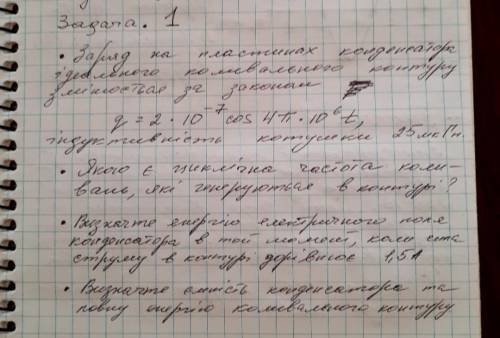 Задача. 1
• Заряд на пластинах конденсатора
ідеального коливального контуру
змінюється за законом
q = 2 · 10⁻⁷ cos 4π · 10⁶ t,
індуктивність котушки 25 мкГн.
• Якою є циклічна частота коли-
вань, які генеруються в контурі?
• Визначте енергію електричного поля
конденсатора в той момент, коли сила
струму в контурі дорівнює 1,5 А
• Визначте ємність конденсатора та
повну енергію коливального контуру.